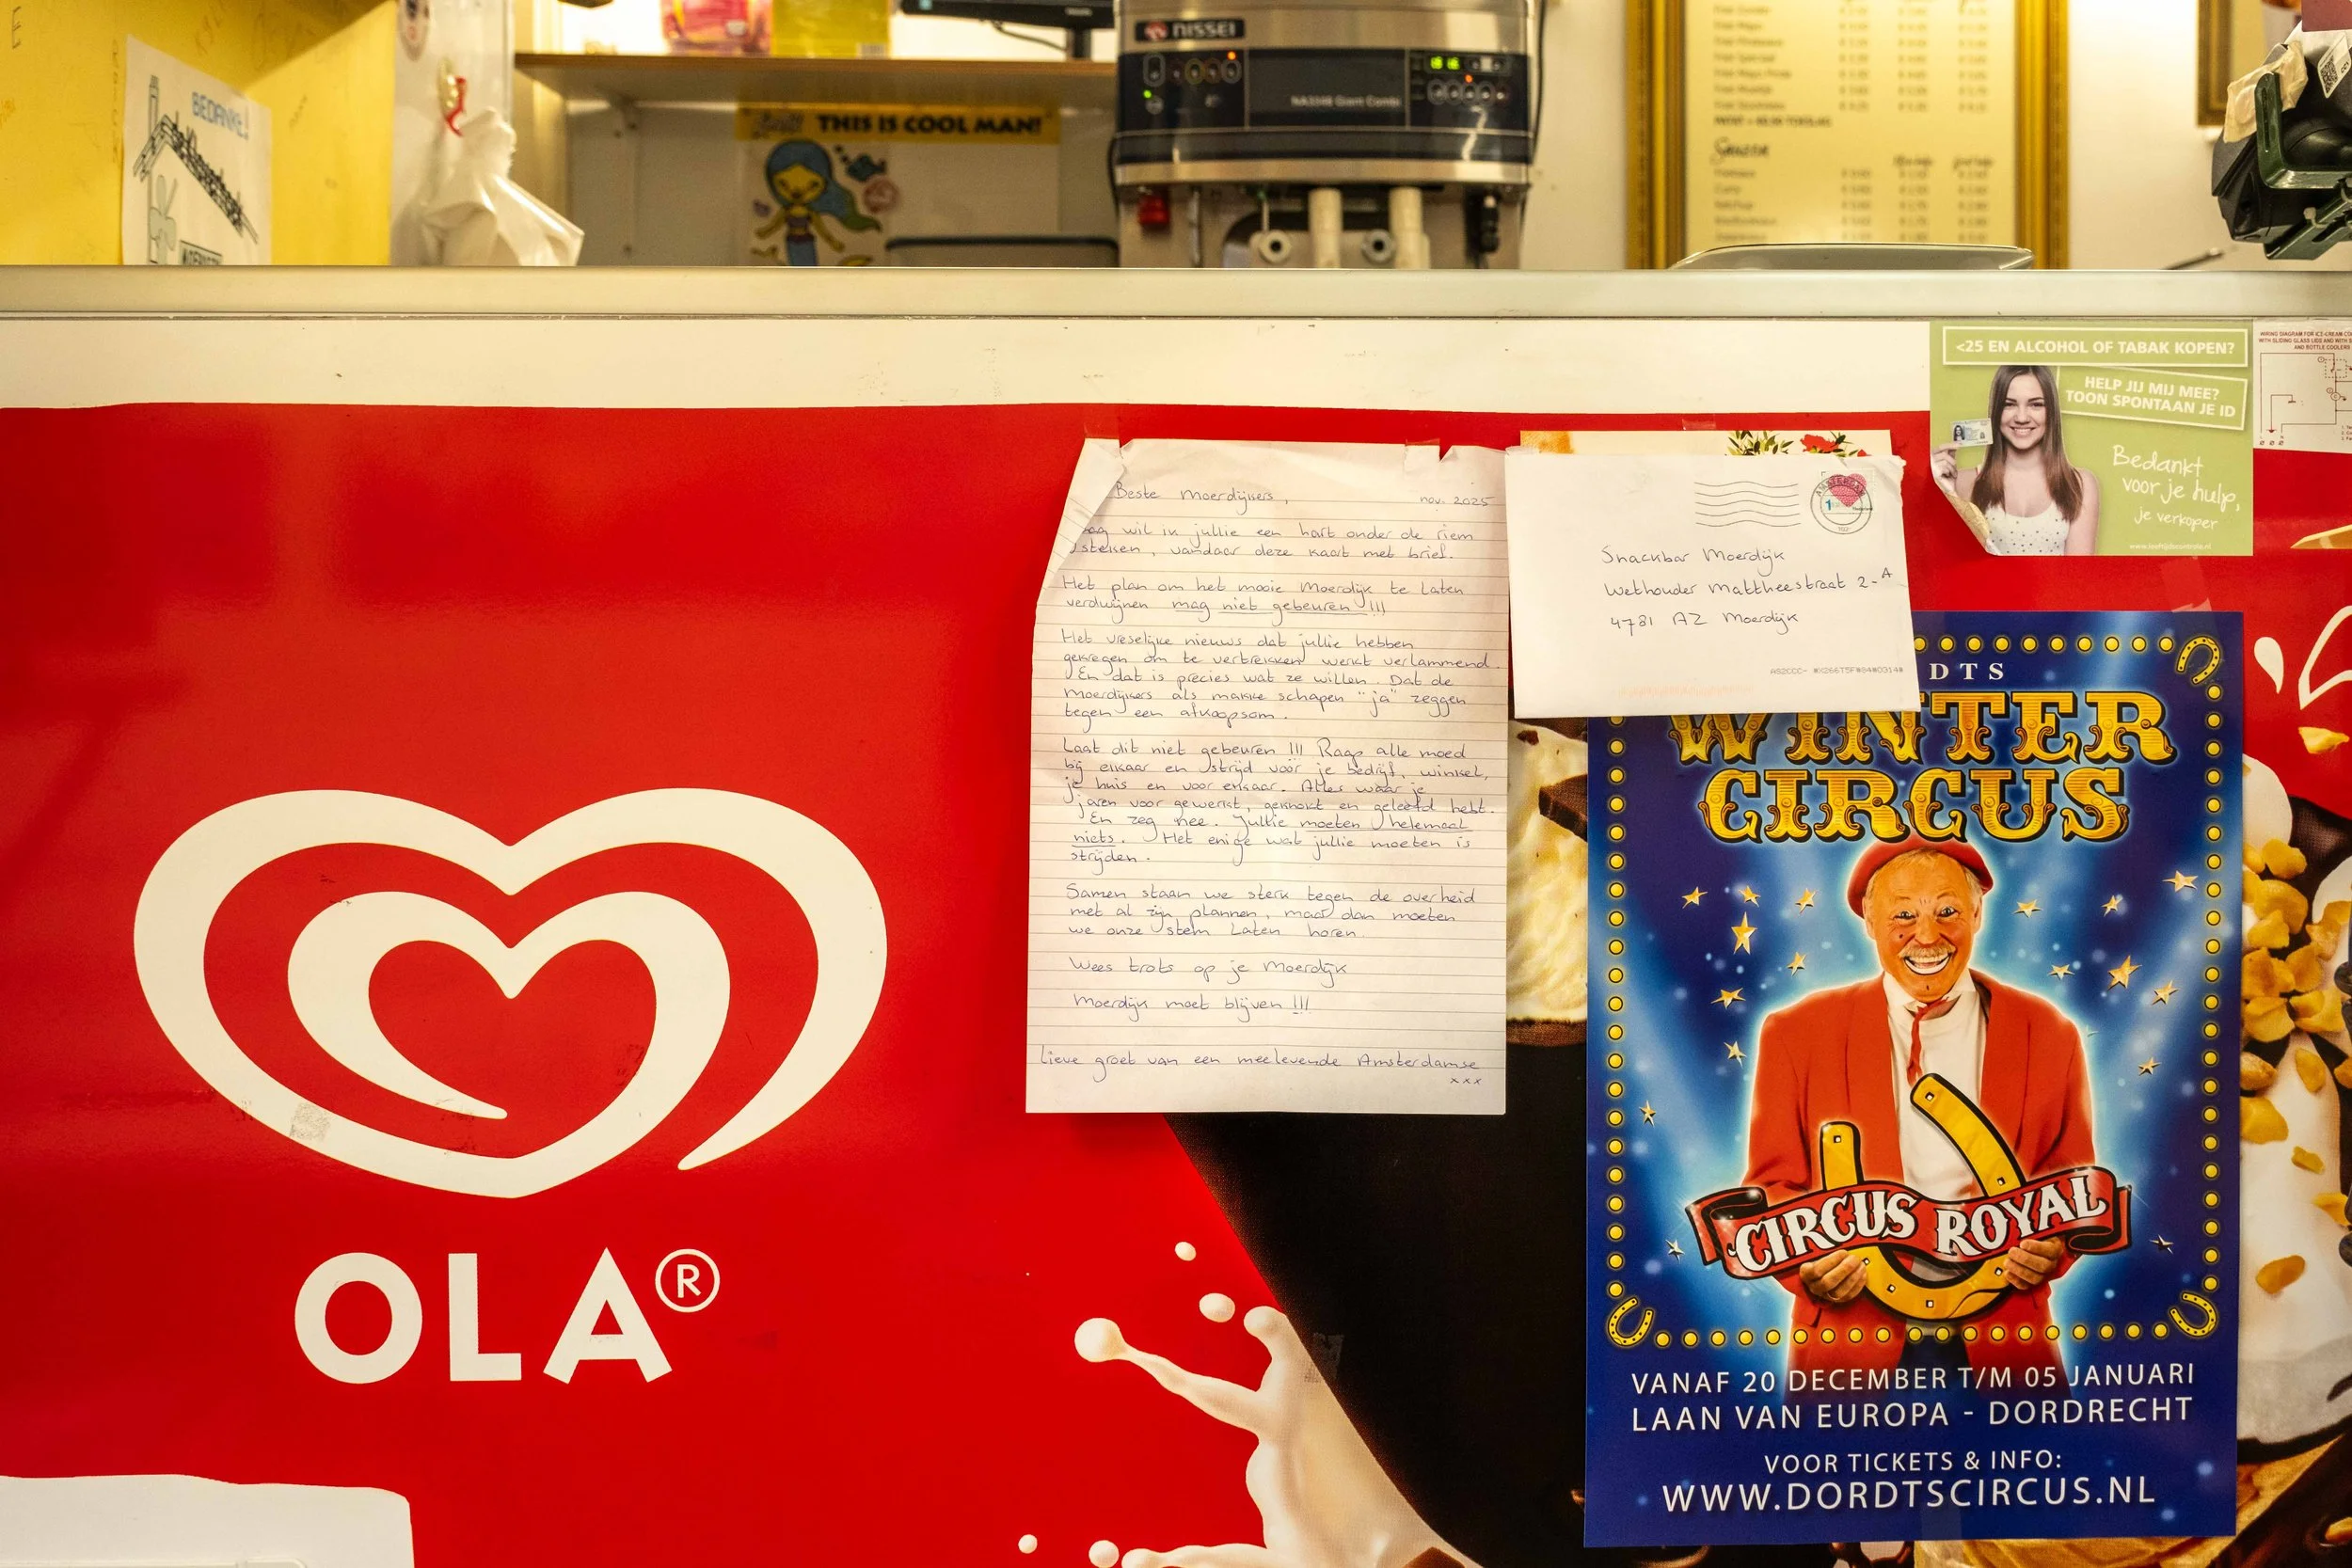 BEDANKT!
THIS IS COOL MAN!
NISSEI
<25 EN ALCOHOL OF TABAK KOPEN?
HELP JIJ MIJ MEE?
TOON SPONTAAN JE ID
Bedankt
voor je hulp,
je verkoper
WIRING DIAGRAM FOR ICE-CREAM
WITH SLIDING GLASS LIDS AND WITH
AND BOTTLE COOLERS
Beste Moerdijkers, nov. 2025
wil ik jullie een hart onder de riem
steken, vandaar deze kaart met brief.
Het plan om het mooie Moerdijk te laten
verdwijnen mag niet gebeuren !!!
Het vreselijke nieuws dat jullie hebben
gekregen om te vertrekken werkt verlammend.
En dat is precies wat ze willen. Dat de
Moerdijkers als makke schapen "ja" zeggen
tegen een afkoopsom.
Laat dit niet gebeuren !!! Raap alle moed
bij elkaar en strijd voor je bedrijf, winkel,
je huis en voor elkaar. Alles waar je
jaren voor gewerkt, geknokt en geleefd hebt.
En zeg nee. Jullie moeten helemaal
niets. Het enige wat jullie moeten is
strijden.
Samen staan we sterk tegen de overheid
met al zijn plannen, maar dan moeten
we onze stem laten horen.
Wees trots op je Moerdijk
Moerdijk moet blijven !!!
Lieve groet van een meelevende Amsterdamse
xxx
AMSTERDAM
1
Snackbar Moerdijk
Wethouder Mattheestraat 2-A
4781 AZ Moerdijk
DTS
WINTER
CIRCUS
CIRCUS ROYAL
VANAF 20 DECEMBER T/M 05 JANUARI
LAAN VAN EUROPA - DORDRECHT
VOOR TICKETS & INFO:
WWW.DORDTSCIRCUS.NL
OLA®